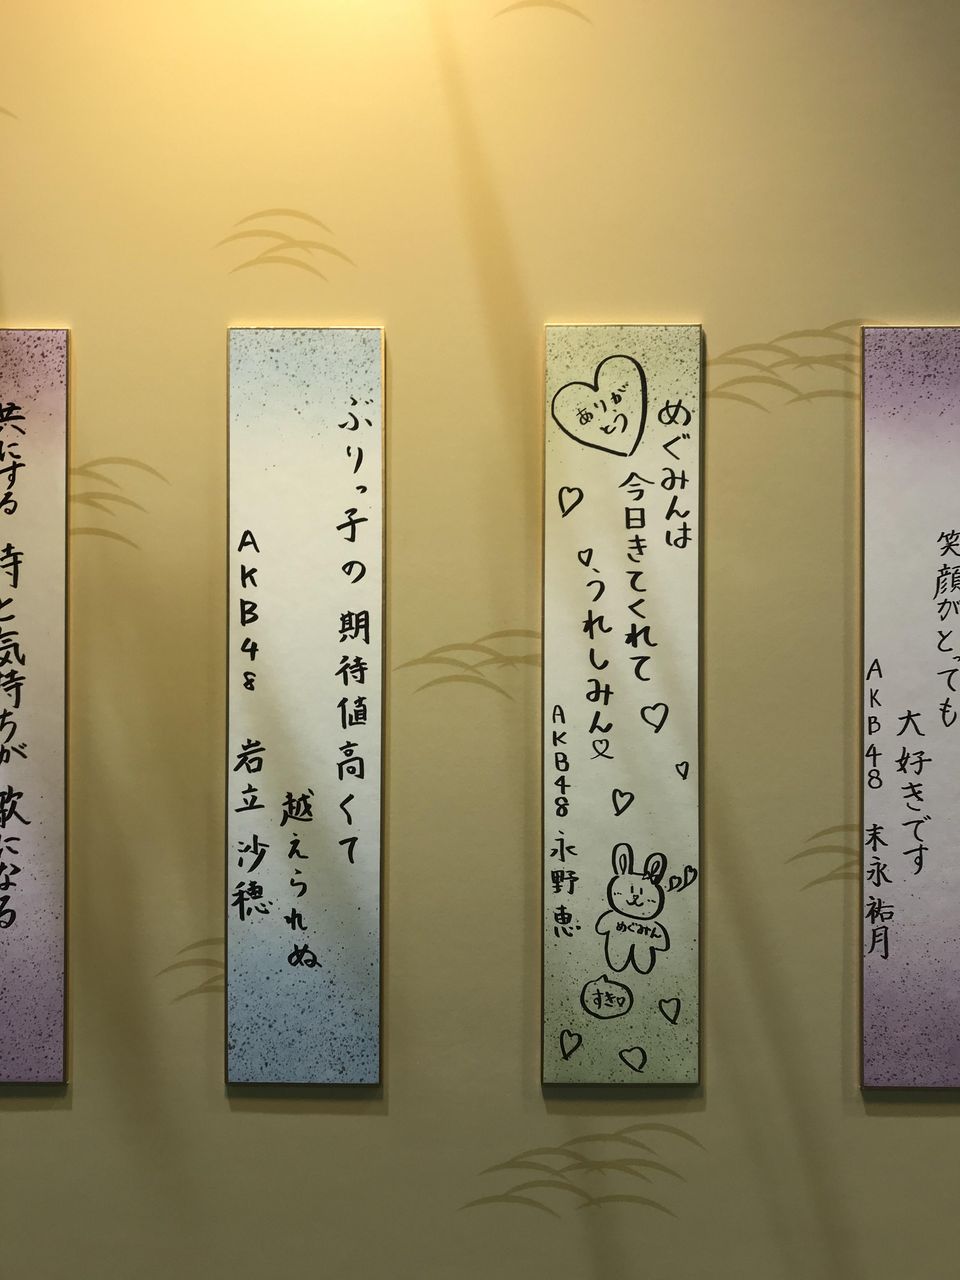 笑顔がとっても
大好きです
AKB48 末永祐月
めぐみんは
今日きてくれて
うれしみん
ありがとう
AKB48 永野恵
めぐみん
すき
ぶりっ子の期待値高くて
越えられぬ
AKB48 岩立沙穂
共にする 時と気持ちが 歌になる